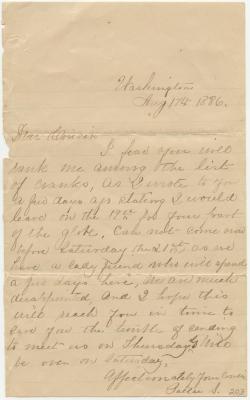 Washington
Aug 17th 1886.
Dear Cousin
I fear you will
rank me among the list
of cranks, as I wrote to you
a few days ago stating I would
leave on the 19th for your part
of the globe, Can not come now
before Saturday the 21st as we
have a lady friend who will spend
a few days here, We are much
disapointed, and I hope this
will reach you in time to
save you the trouble of sending
to meet us on Thursday, Will
be over on Saturday,
Affectionately Your Cousin
Sallie S. 203